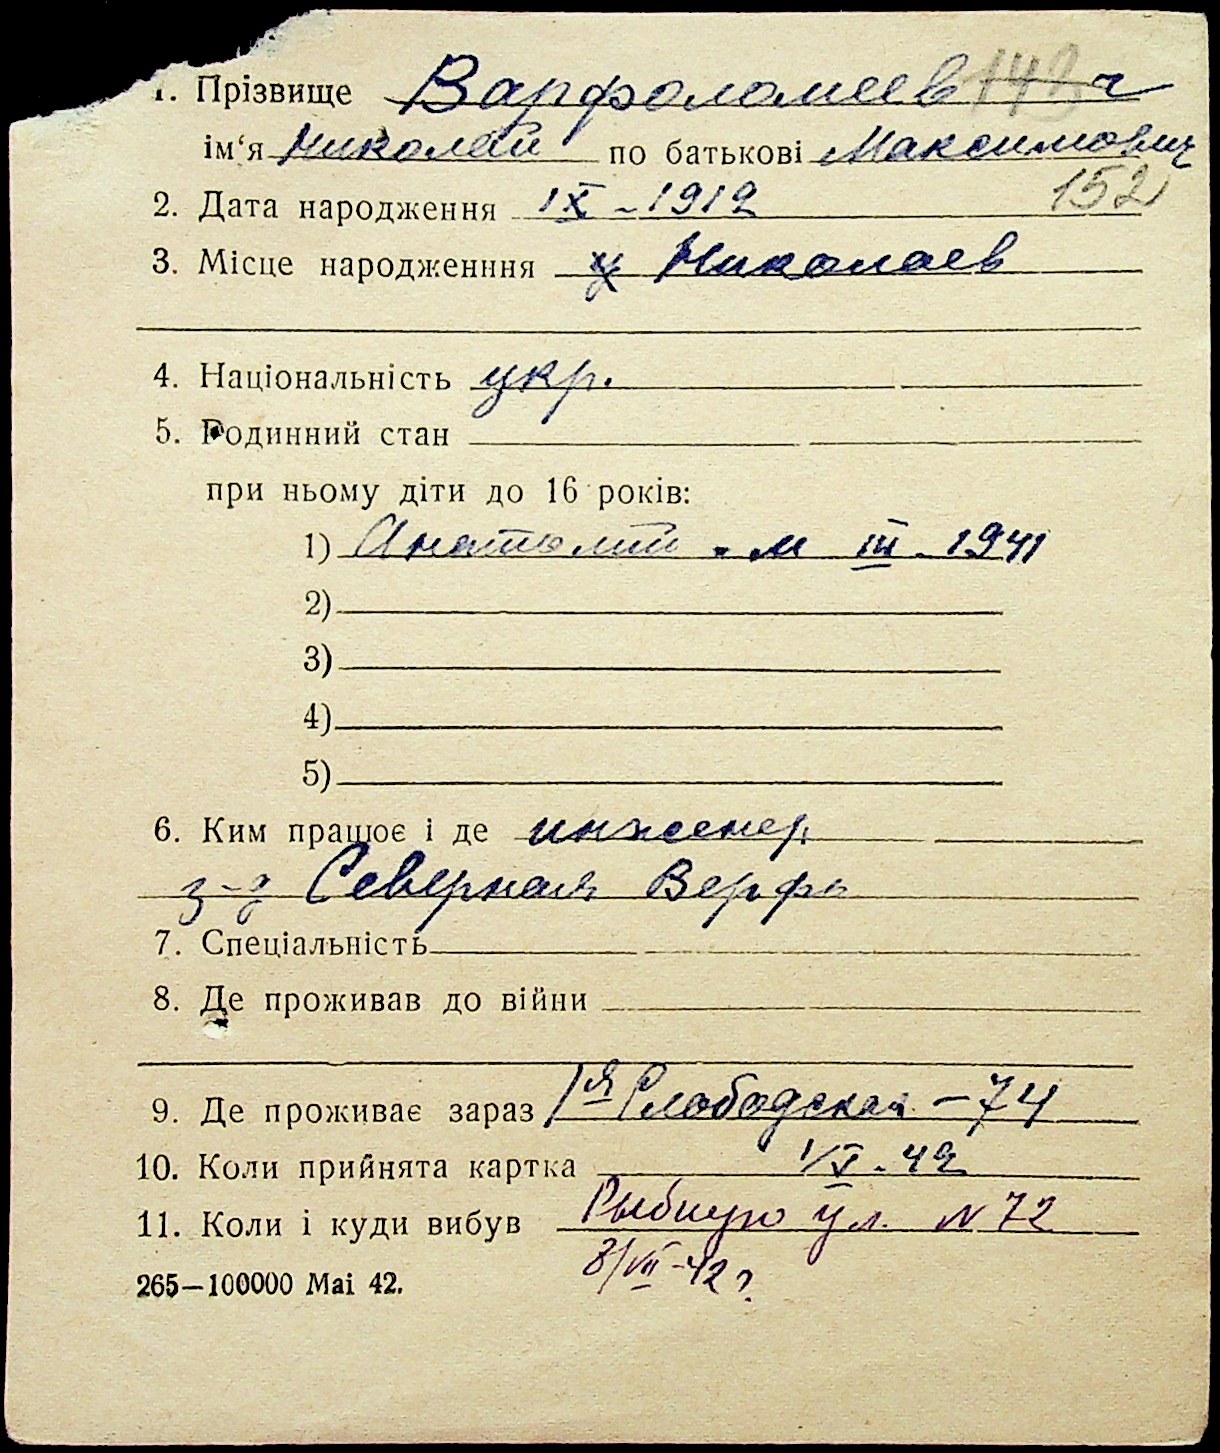 1. Прізвище Варфоломеев
ім‘я Николай по батькові Максимович
152
2. Дата народження IX - 1912
3. Місце народженння у Николаев
4. Національність укр.
5. Родинний стан
при ньому діти до 16 років:
1) Анатолий - м III - 1941
2)
3)
4)
5)
6. Ким працює і де инженер
з-д Северная Верфь
7. Спеціальність
8. Де проживав до війни
9. Де проживає зараз 1я Слободская - 74
10. Коли прийнята картка 1/V - 42
11. Коли і куди вибув Рыбную ул. N 72
8/VII - 42 г.
265—100000 Маі 42.